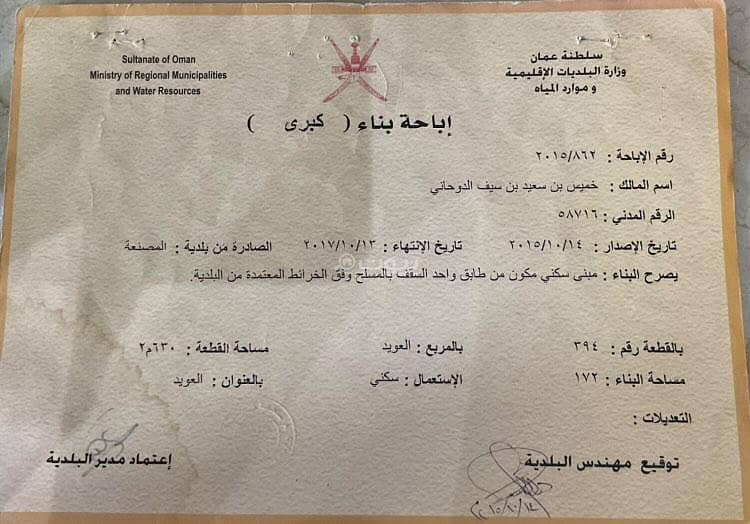 Sultanate of Oman
Ministry of Regional Municipalities
and Water Resources
سلطنة عمان
وزارة البلديات الإقليمية
و موارد المياه
إباحة بناء ( كبرى )
رقم الإباحة : ٢٠١٥/٨٦٢
اسم المالك : خميس بن سعيد بن سيف الدوحاني
الرقم المدني : ٥٨٧١٦
تاريخ الإصدار : ٢٠١٥/١٠/١٤ تاريخ الإنتهاء : ٢٠١٧/١٠/١٣ الصادرة من بلدية : المصنعة
يصرح البناء : مبنى سكني مكون من طابق واحد السقف بالمسلح وفق الخرائط المعتمدة من البلدية.
بالقطعة رقم : ٣٩٤ بالمربع : العويد مساحة القطعة : ٦٣٠م٢
مساحة البناء : ١٧٢ الإستعمال : سكني بالعنوان : العويد
التعديلات :
توقيع مهندس البلدية إعتماد مدير البلدية